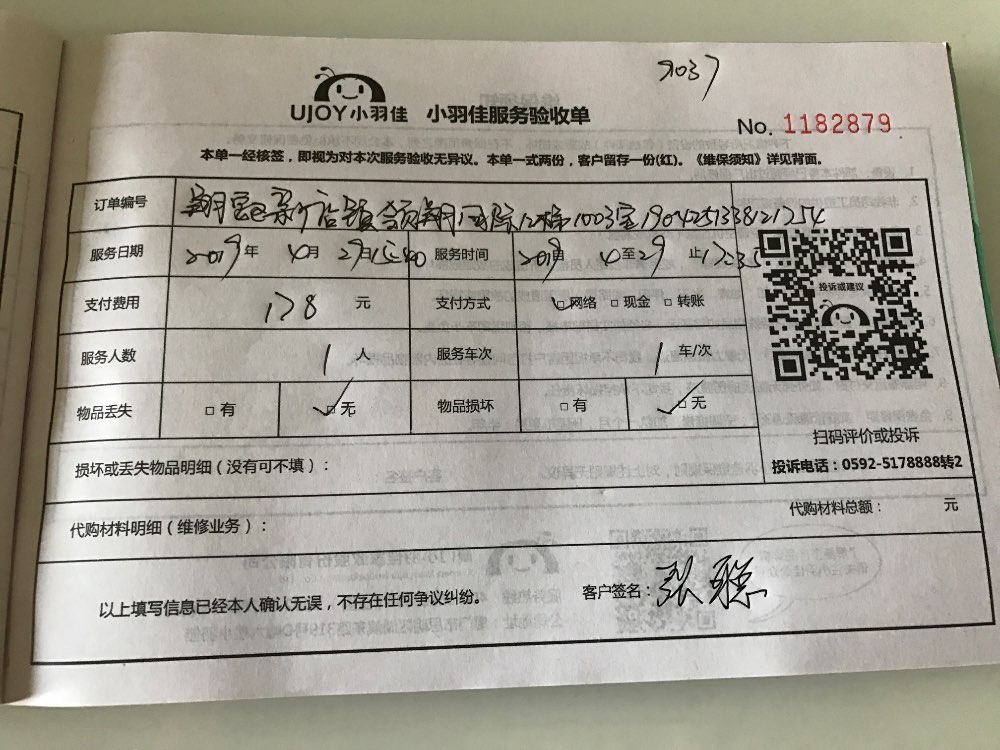 9037
UJOY小羽佳 小羽佳服务验收单
No. 1182879
本单一经核签，即视为对本次服务验收无异议。本单一式两份，客户留存一份(红)。《维保须知》详见背面。
订单编号 1003室190425133821254
服务日期 2019年 4月 29日 服务时间 4至29 止
支付费用 178 元 支付方式 □网络 □现金 □转账
投诉或建议
服务人数 1 人 服务车次 1 车/次
物品丢失 □有 ✓□无 物品损坏 □有 ✓□无
扫码评价或投诉
投诉电话：0592-5178888转2
损坏或丢失物品明细（没有可不填）：
代购材料明细（维修业务）： 代购材料总额： 元
以上填写信息已经本人确认无误，不存在任何争议纠纷。 客户签名：张聪